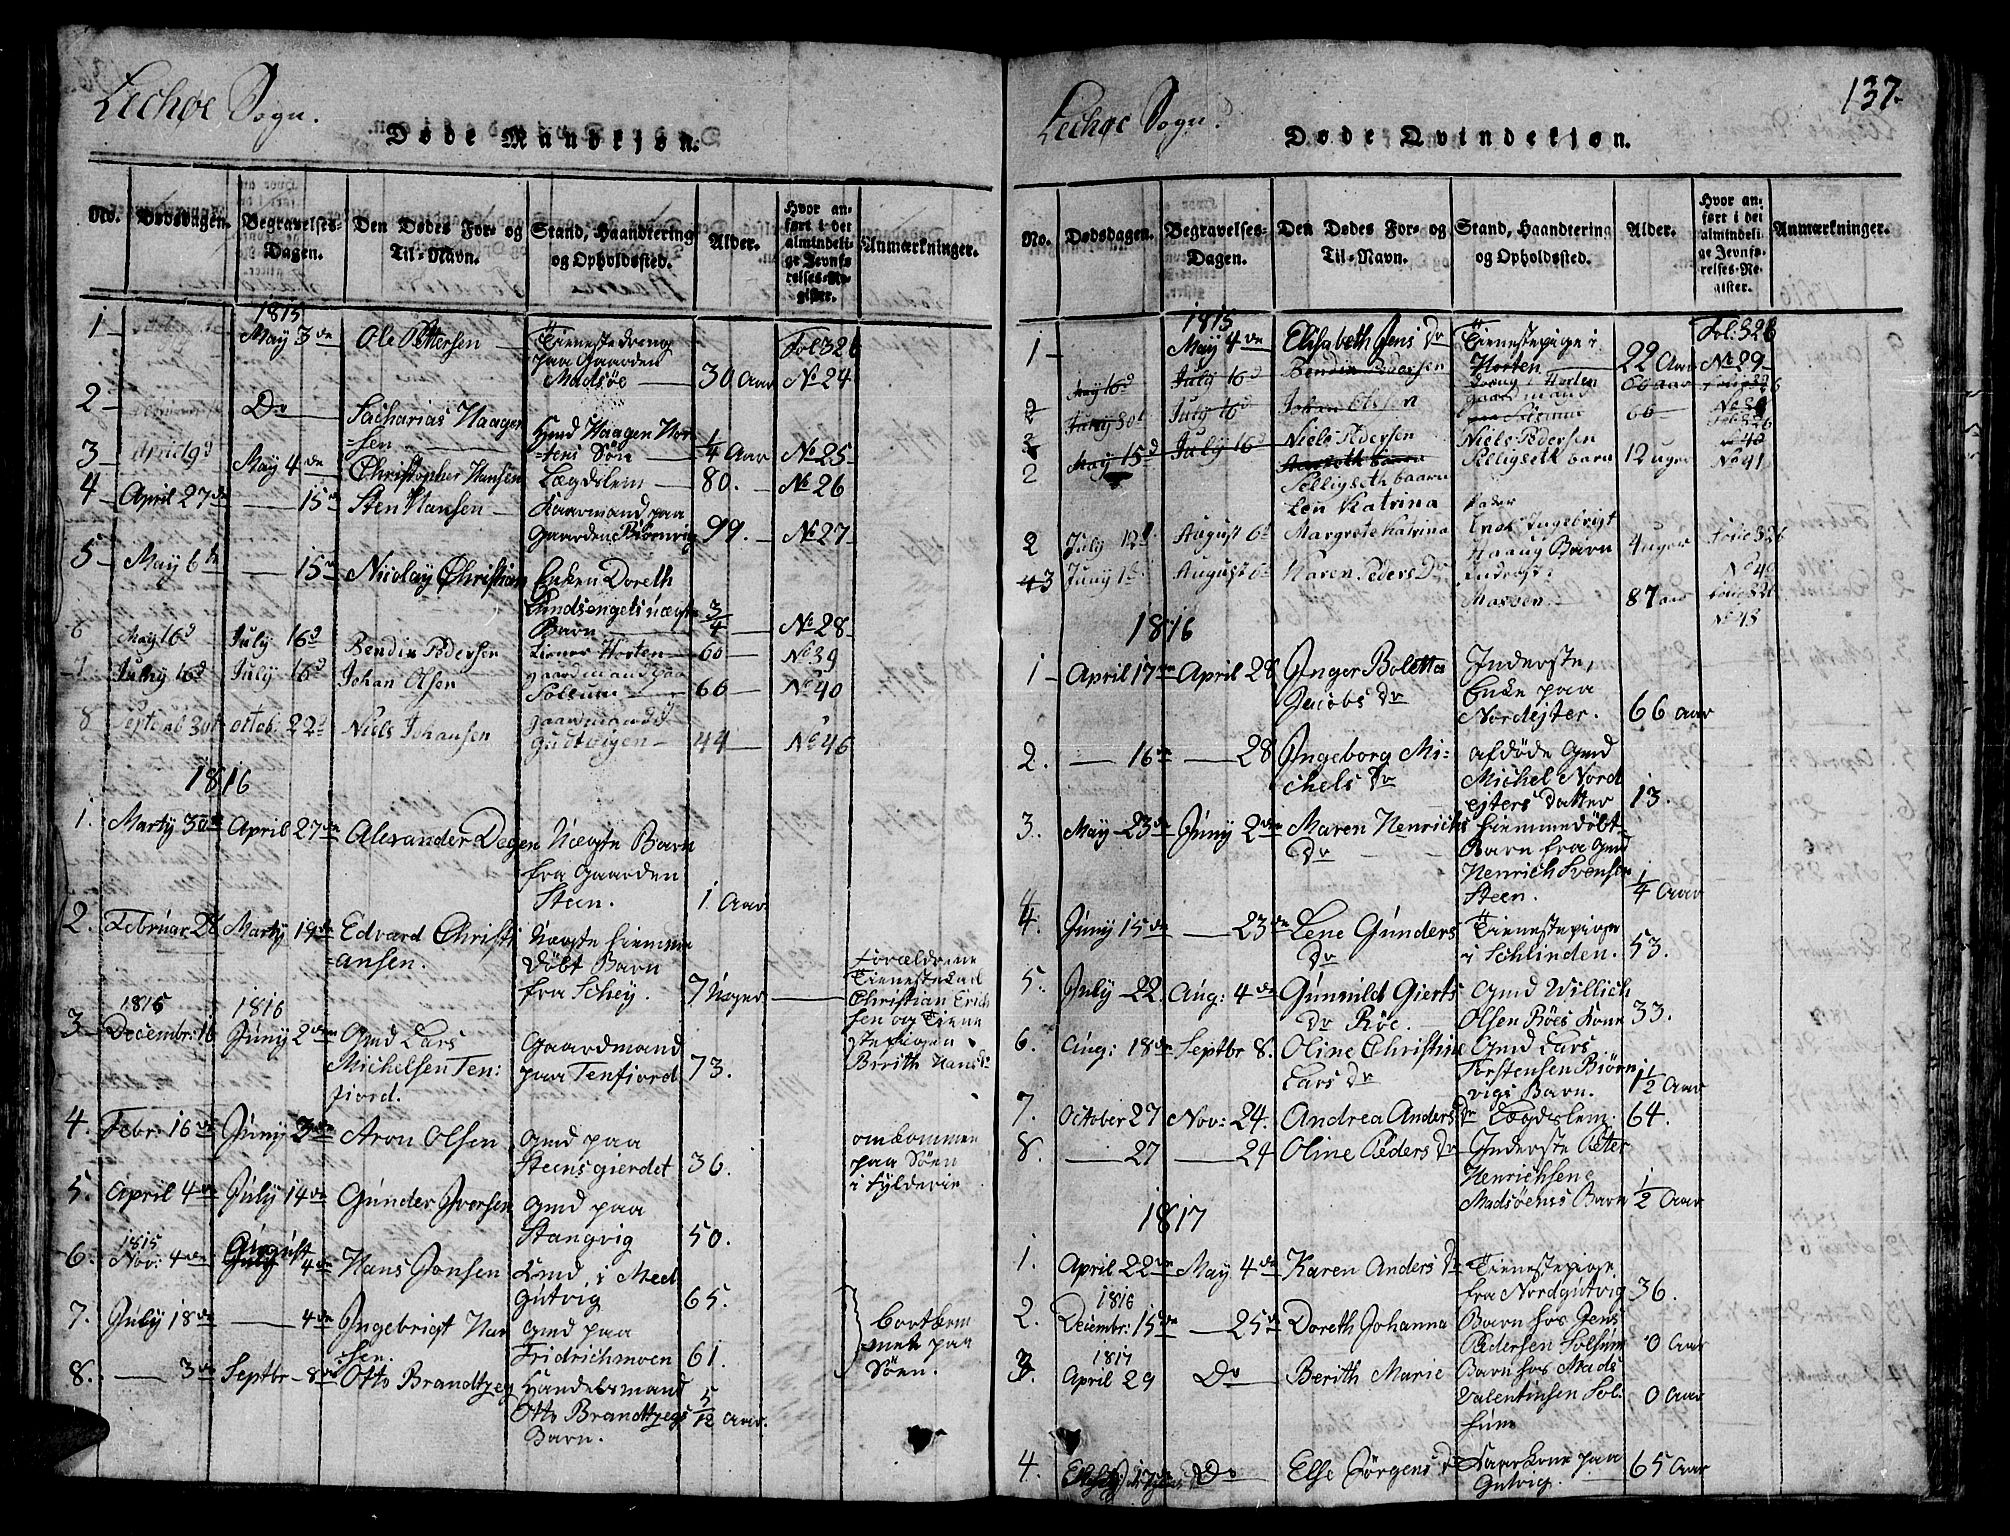 Lechøe Sogn.
Døde Mandkjøn.
No. Dødsdagen. Begravelses-Dagen. Den Dødes For- og Til-Navn. Stand, Haandtering og Opholdssted. Alder. Hvor anført i det almindelige Jevnførelses-Register. Anmærkninger.
1815
1 May 3de Ole Pettersen Tienestedreng
paa Gaarden
Madsøe 30 Aar Fol 326 No 24
2 Do Sacharias Haagensen Gmd Haagen Hortens Søn 1/4 Aar No 25
3 April 9d May 4de Christopher Hansen Lægdslem 80. No 26
4 April 27de 15de Sten Hansen Kaarmand paa
Gaarden Biørnvig 99. No 27
5 May 6te 15de Nicolay Christian Enken Doreth
uægte
Barn 3/4 No 28
6 May 16d July 16d Bendix Pedersen Horten 60 No 39
7 July 16d July 16d Johan Olsen gaardmand paa
Solsum 66 No 40
8 Septemb 30t octob. 22d Niels Johansen gaardmand
Gudtvigen 44 No 46
1816
1. Marty 30te April 27de Alexander Degen Uægte Barn
fra Gaarden
Steen. 1 Aar
2. Februar 28 Marty 19de Edvard Christiansen. Uægte hiemme
døbt Barn
fra Schey. 7 Uger Forældrene
Tienestekarl
Christian Erichsen og Tienestepigen
Berith Hans Dr
3 1815 Decembr: 16 1816 Juny 2den Gmd Lars
Michelsen Tenfiord. Gaardmand
paa Tenfiord 73.
4. Febr: 16de Juny 2den Aron Olsen Gmd paa
Steensgierdet 36. omkommen
paa Søen
i Fylderie
5. April 4de July 14de Gunder Iversen Gmd paa
Stangvig 50.
6. 1815 Nov: 4de August 4de Hans Jonsen Gmd i Med
Gutvig 65.
7. July 18de 4de Ingebrigt Hansen. Gmd paa
Fridrichmoen 61. bortkommet paa
Søen.
8. 3de Septbr 8de Otto Brandtzeg Handelsmand
Otto Brandtzegs
Barn. 5/12 Aar.
137.
Lechøe Sogn.
Døde Qvindekjøn.
No. Dødsdagen. Begravelses-Dagen. Den Dødes For- og Til-Navn. Stand, Haandtering og Opholdssted. Alder. Hvor anført i det almindelige Jevnførelses-Register. Anmærkninger.
1815
1 May 4de Elisabeth Jens Dr Tienestepige i
Horten 22 Aar Fol. 326 No 29
May 16d July 16d Bendix Pedersen Horten 60 aar
2 Juny 30t July 16d Johan Olsen gaardmand 66
3 May 15d July 16d Niels Pedersen Niels Pedersen
2 Selligseth baarn Selligseth barn 12 uger No 41
Len Katrina
2 July 12d. August 6d Margrete Katrina Ingebrigt
Haaug Barn 4 uger folio 326 No 4
3 Juny 1d. August 6d Karen Peders Dr 87 aar folio 326
No 43
1816
1 April 17de April 28 Inger Bolettes
Jacobs Dr Inderste,
Enke paa
Nordejter. 66 Aar
2. 16de 28 Ingeborg Michels Dr afdøde Gmd
Michel Nord
ejters Datter 13.
3. May 23de Juny 2den Maren Henrichs
Dr hiemmedøbt
Barn fra Gmd
Henrich Svensen
Steen. 1/4 Aar
4. Juny 15de 23de Lene Gunders
Dr Tienestepige
i Schlinden. 53.
5. July 22 Aug: 4de Gunnild Gierts
Dr Røe. Gmd Willich
Olsen Røes Kone 33.
6. Aug: 18de Septbr 8. Oline Christine
Lars Dr Gmd Lars
Torstensen Biørnvigs Barn. 1 1/2 Aar
7. October 27 Nov: 24. Andrea Anders Dr Lægdslem. 64.
8. 27 24 Oline Peders Dr Inderste Peter
Henrichsen
Madsøens Barn 1/2 Aar
1817
1. April 22de May 4de Karen Anders Dr Tienestepige
fra Nordgutvig 36.
2. 1816 Decembr: 15de 25de Doreth Johanna Barn hos Jens
Pedersen Solsum 0 Aar
3. 1817 April 29 Do Berith Marie Barn hos Mads
Valentinsen Solsum 0 Aar
4. 17de Do Else Jørgens Dr Kaarkone paa
Gutvig. 65 Aar